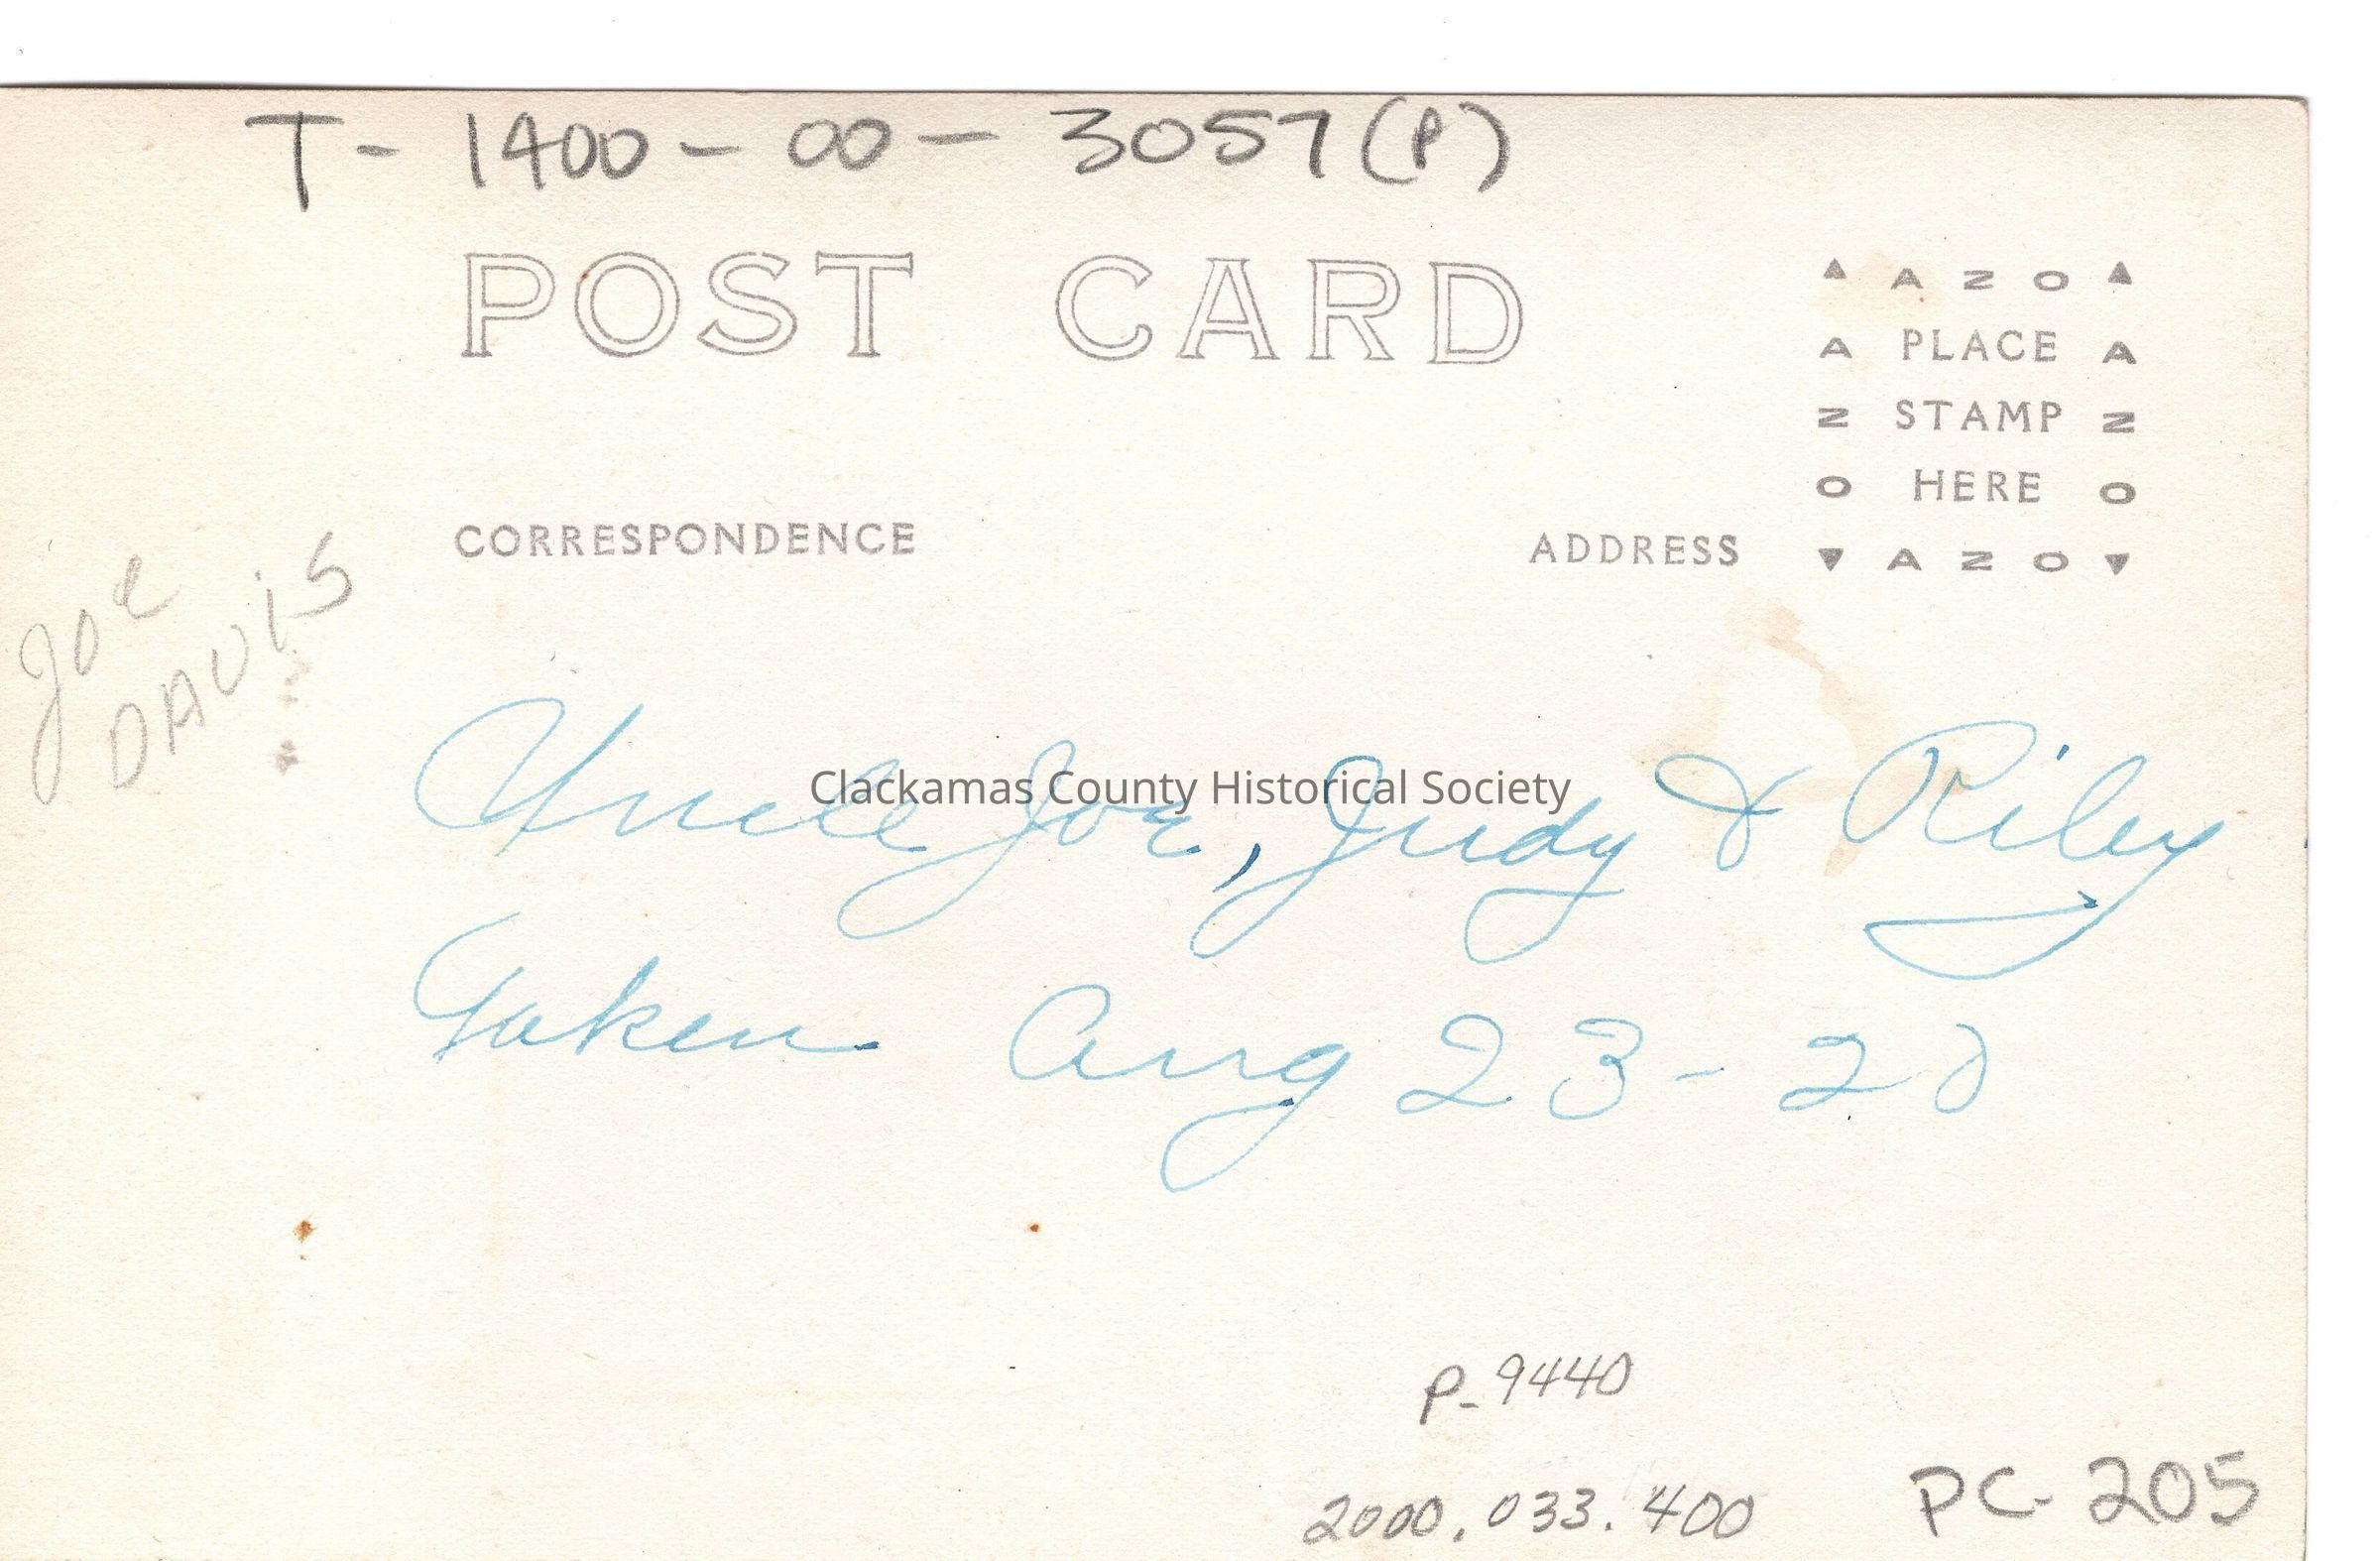 T- 1400-00-3057(P)
POST CARD
▲ A Z O ▲
A PLACE A
Z STAMP Z
O HERE O
▼ A Z O ▼
CORRESPONDENCE
ADDRESS
Joe
DAViS
Clackamas County Historical Society
Uncle Joe, Judy & Riley
Taken Aug 23-20
P-9440
2000.033.400
PC-205